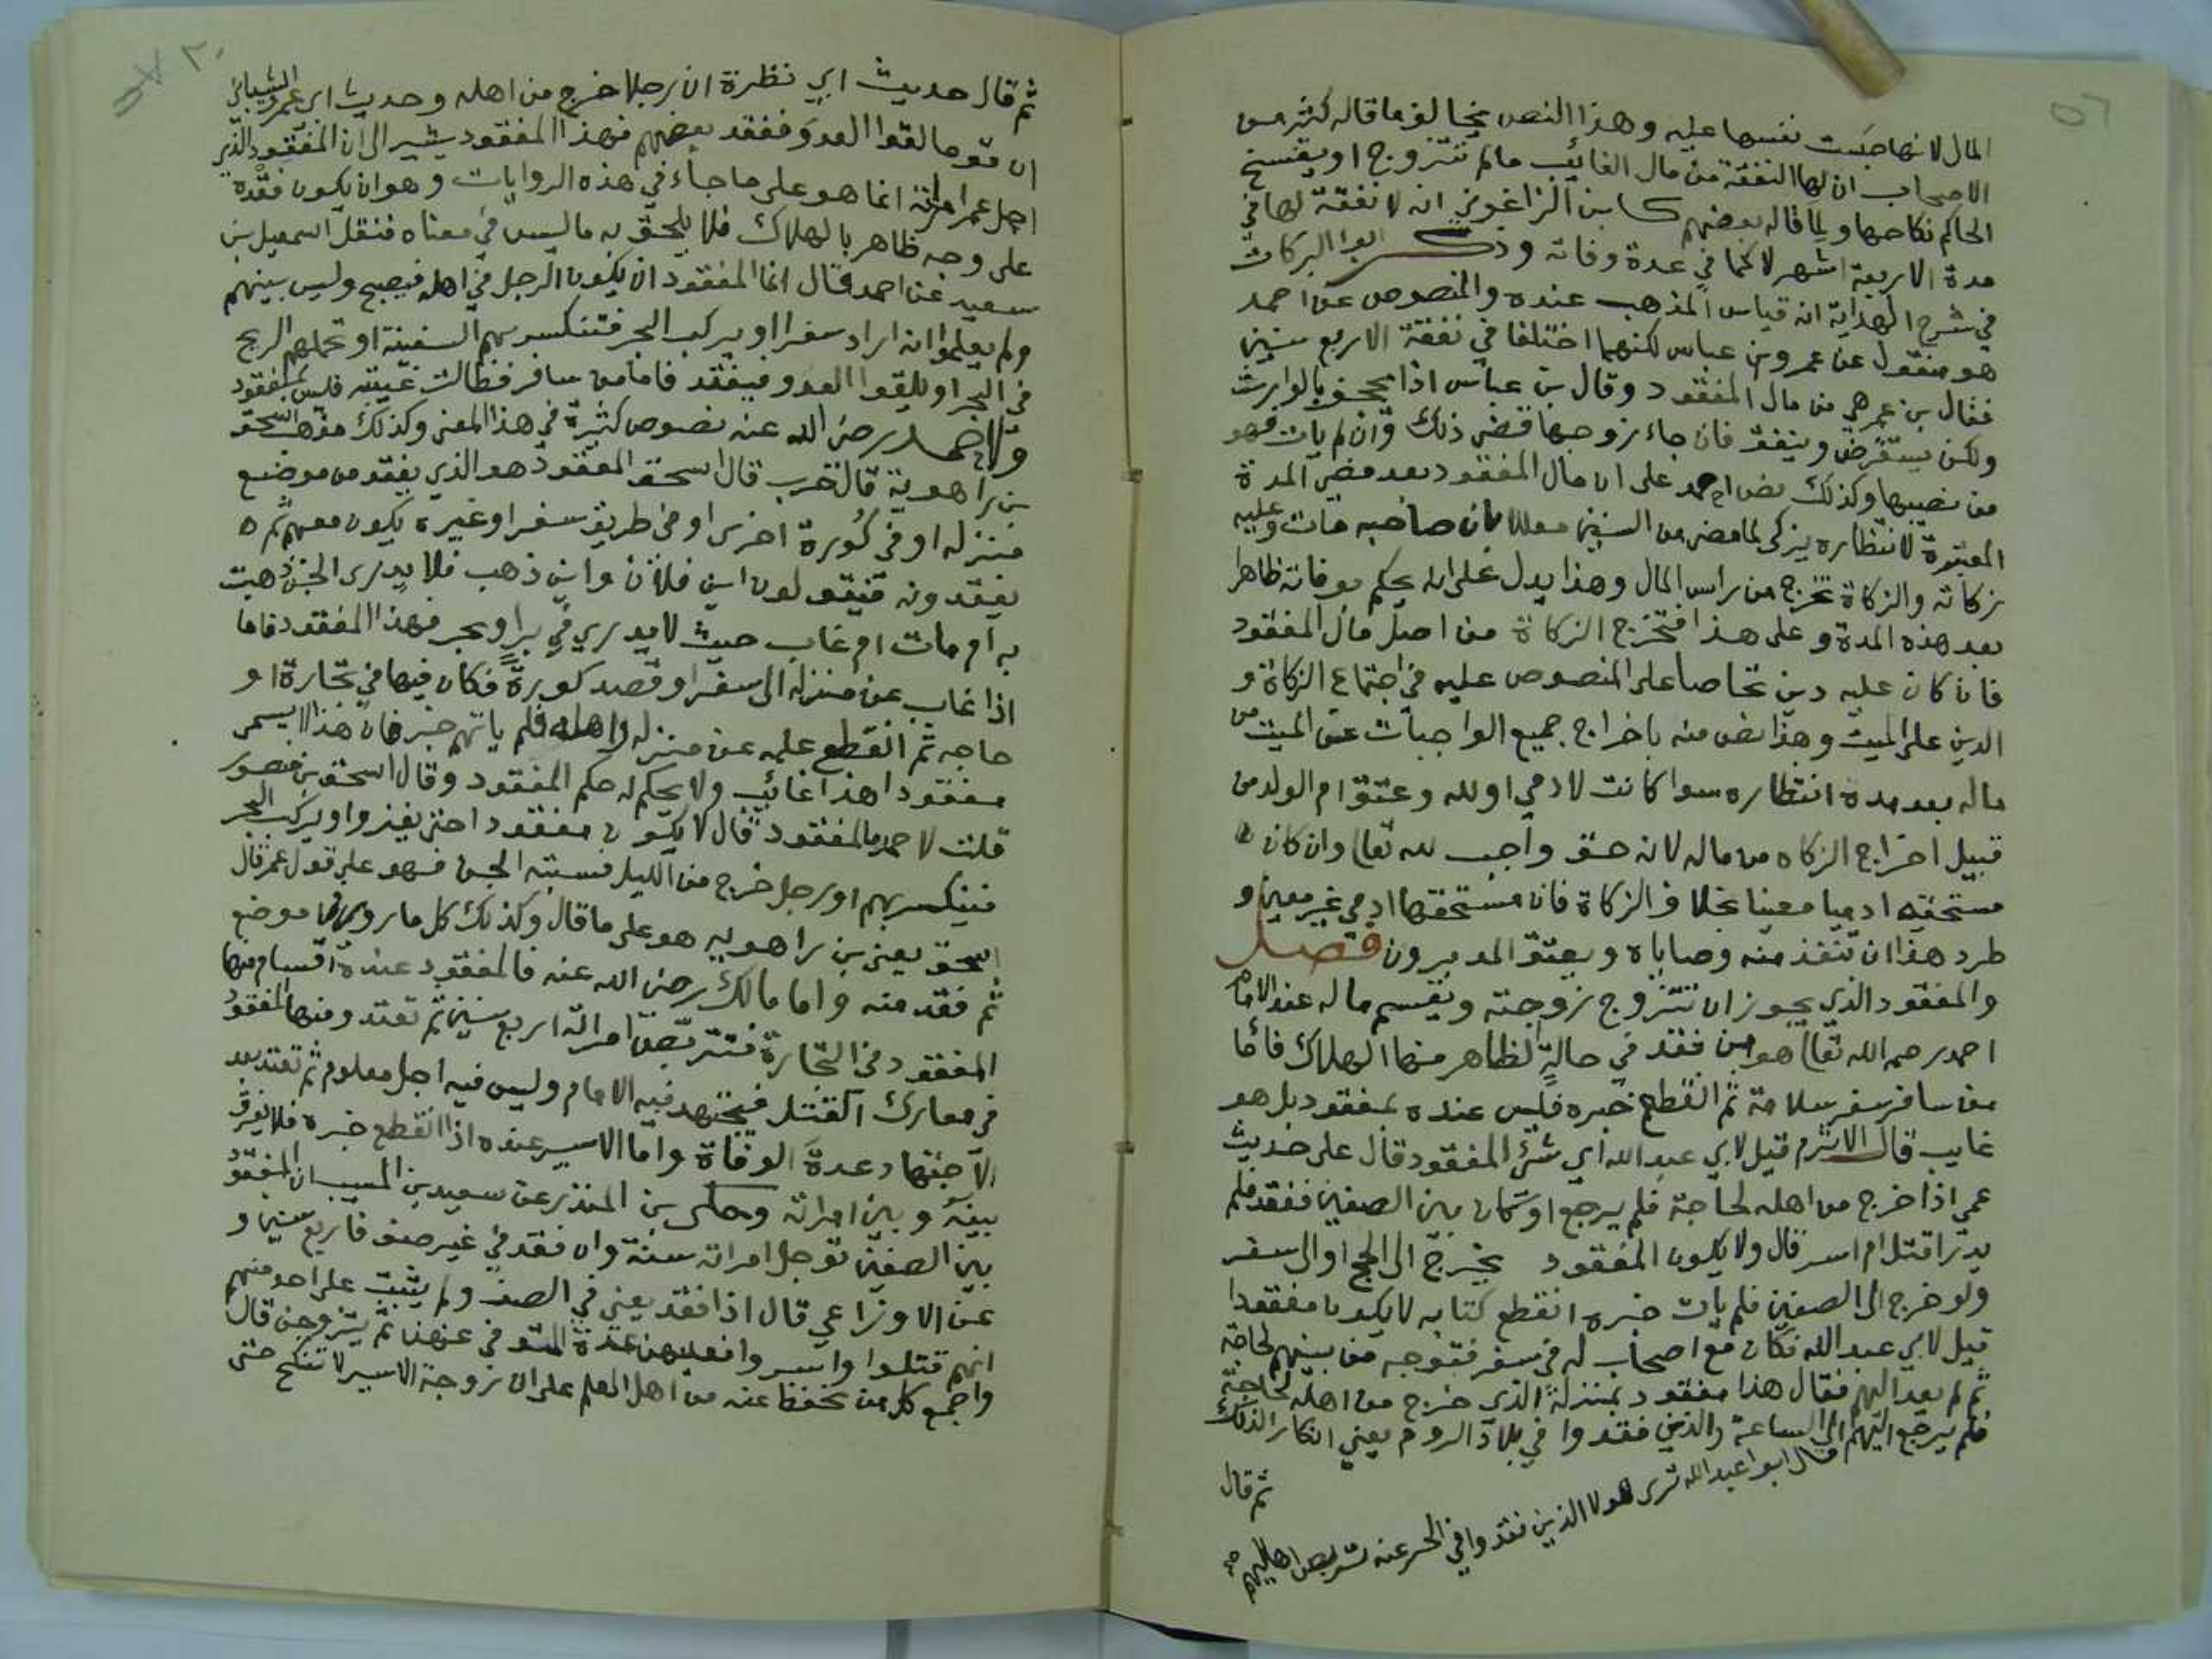 المال لانها حبست نفسها عليه وهذا النص يخالف ما قاله كثير من
الاصحاب ان لها النفقة من مال الغائب مالم تتزوج او يفسخ
الحاكم نكاحها ولما قاله بعضهم كابن الزاغوني انه لا نفقة لها في
مدة الاربعة اشهر لا كما في عدة وفاته وذكر ابوا البركات
في شرح الهداية انه قياس المذهب عنده والمنصوص عن احمد
هو منقول عن عمر وبن عباس لكنهما اختلفا في نفقة الاربع سنين
فقال بن عمر هي من مال المفقود وقال بن عباس اذا يجحف بالوارث
ولكن يستقرض وينفق فان جاء زوجها قضى ذلك وان لم يات فهو
من نصيبها وكذلك نص احمد على ان مال المفقود بعد مضي المدة
المعتبرة لانتظاره يزكى لما مضى من السنين معللا بان صاحبه مات وعليه
زكاته والزكاة تخرج من راس المال وهذا يدل على انه يحكم بوفاته ظاهرا
بعد هذه المدة وعلى هذا فتخرج الزكاة من اصل مال المفقود
فان كان عليه دين تحاصا على المنصوص عليه في اجتماع الزكاة و
الدين على الميت وهذا نص منه باخراج جميع الواجبات عن الميت من
ماله بعد مدة انتظاره سوا كانت لادمي او لله وعتق ام الولد من
قبيل اخراج الزكاه من ماله لانه حق واجب لله تعالى وان كان
مستحقه ادميا معينا بخلاف الزكاة فان مستحقها ادمي غير معين و
طرد هذا ان تنفذ منه وصاياه ويعتق المدبرون فصل
والمفقود الذي يجوز ان تتزوج زوجته ويقسم ماله عند الامام
احمد رحمه الله تعالى هو من فقد في حالة الظاهر منها الهلاك فاما
من سافر سفر سلامة ثم انقطع خبره فليس عنده بمفقود بل هو
غايب قال الاثرم قيل لابي عبد الله اي شئ المفقود قال على حديث
عمر اذا خرج من اهله لحاجة فلم يرجع او كان بين الصفين ففقد فلم
يدر اقتل ام اسر قال ولا يكون المفقود يخرج الى الحج او الى سفر
ولو خرج الى الصفين فلم يات خبره انقطع كتابه لا يكون مفقودا
قيل لابي عبد الله فكان مع اصحاب له في سفر فتوجه من بينهم لحاجة
ثم لم يعد اليهم فقال هذا مفقود بمنزلة الذي خرج من اهله لحاجة
فلم يرجع اليهم الى الساعة والذين فقدوا في بلاد الروم يعني انكار الذلك
قال ابوا عبد الله ترى هولا الذين فقدوا في الحر عنه تتربص اهاليهم
ثم قال
ثم قال حديث ابي نظرة ان رجلا خرج من اهله وحديث ابي عمرو الشيباني
ان قوما لقوا العدو ففقد بعضهم فهذا المفقود يشير الى ان المفقود الذي
اجل عمر امراته انما هو على ما جاء في هذه الروايات وهو ان يكون فقده
على وجه ظاهر بالهلاك فلا يلحق به ما ليس في معناه فنقل اسمعيل بن
سعيد عن احمد قال انما المفقود ان يكون الرجل في اهله فيصبح وليس بينهم
ولم يعلموا انه اراد سفرا او يركب البحر فتنكسر بهم السفينة او تحملهم الريح
في البحر او يلقوا العدو فيفقد فاما من سافر فطالت غيبته فليس بمفقود
ولاحمد رضي الله عنه نصوص كثيرة في هذا المعنى وكذلك مذهب اسحق
بن راهوية قال حرب قال اسحق المفقود هو الذي يفقد من موضع
منزله او في كورة اخرى او في طريق سفر او غيره يكون معهم ثم
يفقدونه فيقولون اين فلان واين ذهب فلا يدرى الجن ذهبت
به ام مات ام غاب حيث لا يدري في بر او بحر فهذا المفقود فاما
اذا غاب عن منزله الى سفر او قصد كورة فكان فيها في تجارة او
حاجه ثم انقطع علمه عن منزله واهله فلم ياتهم خبر فان هذا لا يسمى
مفقودا هذا غائب ولا يحكم له حكم المفقود وقال اسحق بن منصور
قلت لاحمد ما المفقود قال لا يكون مفقودا حتى يغزوا او يركب البحر
فينكسر بهم او رجل خرج من الليل فسبته الجن فهو على قول عمر قال
اسحق يعني بن راهويه هو على ما قال وكذلك كل ما روي في موضع
ثم فقد منه واما مالك رضي الله عنه فالمفقود عنده اقسام منها
المفقود في التجارة فتتربص امراته اربع سنين ثم تعتد ومنها المفقود
في معارك القتل فيجتهد فيه الامام وليس فيه اجل معلوم ثم تعتد بعد
الاجتهاد عدة الوفاة واما الاسير عنده اذا انقطع خبره فلا يفرق
بينه وبين امراته وحكى بن المنذر عن سعيد بن المسيب ان المفقود
بين الصفين توجل امراته سنة وان فقد في غير صف فاربع سنين و
عن الاوزاعي قال اذا فقد يعني في الصف ولم يثبت على احد منهم
انهم قتلوا واسروا فعليهن عدة المتوفى عنهن ثم يتزوجن قال
واجمع كل من نحفظ عنه من اهل العلم على ان زوجة الاسير لا تنكح حتى